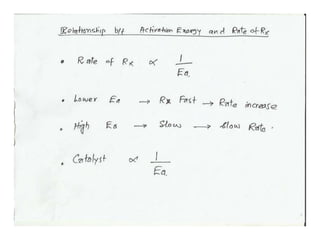 Relationship b/t Activation Energy and Rate of Rx
• Rate of Rx ∝ 1/Ea.
• Lower Ea → Rx Fast → Rate increase
• High Ea → Slow → Slow Rate.
• Catalyst ∝ 1/Ea.